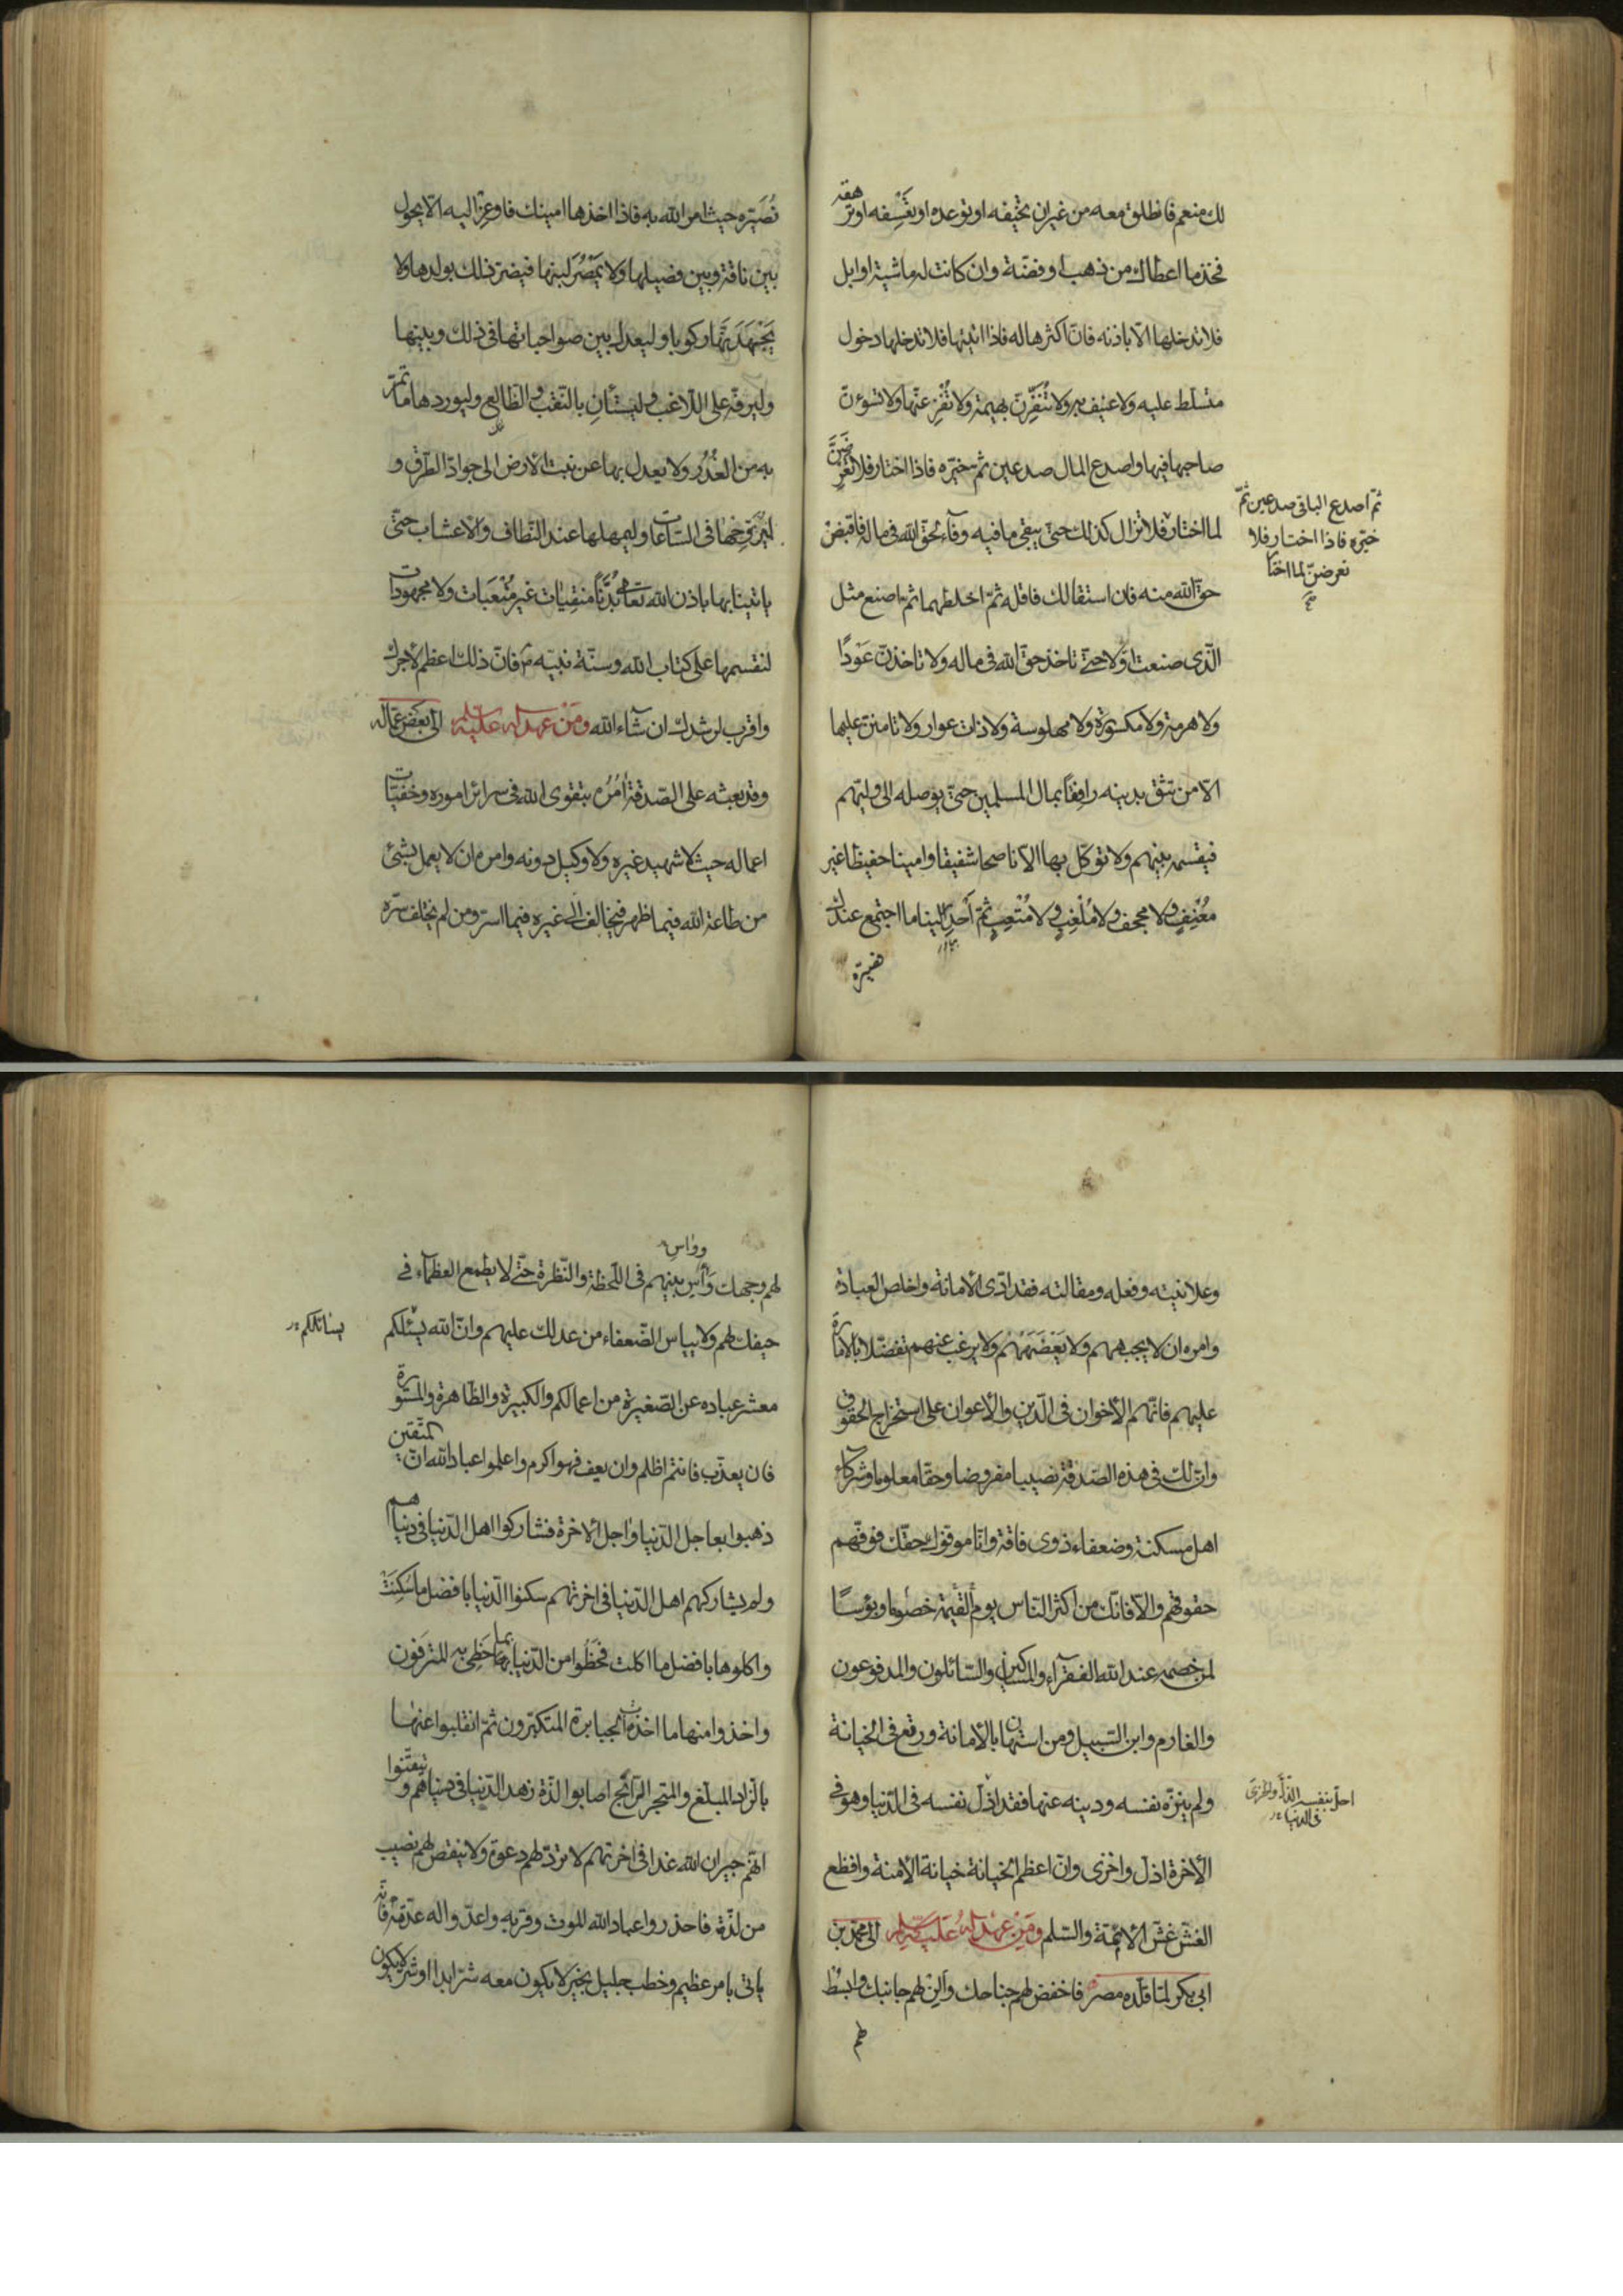 لك منعم فانطلق معه من غير ان تخيفه او توعده او تعسفه او ترهقه
فخذ ما اعطاك من ذهب او فضّة وان كانت له ماشية او ابل
فلا تدخلها الّا باذنه فانّ اكثرها له فاذا اتيتها فلا تدخلها دخول
متسلّط عليه ولا عنيف به ولا تُنَفِّرَنّ بهيمة ولا تُفْزِعَنّها ولا تسوءنّ
صاحبها فيها واصدع المال صدعين ثمّ خيّره فاذا اختار فلا تعرضَنَّ
لما اختاره فلا تزال كذلك حتّى يبقى ما فيه وفاء لحقّ الله فى ماله فاقبض
حقّ الله منه فان استقالك فاقله ثمّ اخلطهما ثمّ اصنع مثل
الّذى صنعت اوّلا حتّى تاخذ حقّ الله فى ماله ولا تاخذنّ عَوْدًا
ولا هرمة ولا مكسورة ولا مهلوسة ولا ذات عوار ولا تامننّ عليها
الّا من تثق بدينه رافِقًا بمال المسلمين حتّى يوصله الى وليّهم
فيقسمه بينهم ولا توكّل بها الّا ناصحا شفيقا وامينا حفيظا غير
مُعْنِفٍ ولا مجحف ولا مُلْغِبٍ ولا مُتْعِبٍ ثمّ اَحْدِر الينا ما اجتمع عندك
ثمّ اصدع الباقى صدعين ثمّ
خيّره فاذا اختار فلا
تعرضنّ لما اختار
صح
نُصَيّره حيث امر الله به فاذا اخذها امينك فاوعِز اليه الّا يحول
بين ناقة وبين فصيلها ولا يَمْصُرَ لبنها فيضرّ ذلك بولدها ولا
يَجْهَدَنَّها ركوبا وليعدل بين صواحباتها فى ذلك وبينها
وليرفّه على اللّاغب وليستأنِ بالنّقب والظّالع وليوردها ما تمرّ
به من الغُدُر ولا يعدل بها عن نبت الارض الى جوادّ الطّرق و
ليُرَوِّحْها فى السّاعات وليمهلها عند النّطاف والاعشاب حتّى
ياتينا بها باذن الله تعالى بُدَّنًا منقِيات غير مُتْعَبات ولا مجهودات
لنقسمها على كتاب الله وسنّة نبيّه فانّ ذلك اعظم لاجرك
واقرب لرشدك ان شاء الله ومن عهد له عليه السلم الى بعض عمّاله
وقد بعثه على الصّدقة اَمُرُه بتقوى الله فى سرائر اموره وخفيّات
اعماله حيث لا شهيد غيره ولا وكيل دونه وامره ان لا يعمل بشئ
من طاعة الله فيما ظهر فيخالف الى غيره فيما اسرّ ومن لم يختلف سرّه
وعلانيته وفعله ومقالته فقد ادّى الامانة واخلص العبادة
وامره ان لا يجبههم ولا يَعْضَهَهُم ولا يرغب عنهم تفضّلا بالامارة
عليهم فانّهم الاخوان فى الدّين والاعوان على استخراج الحقوق
وانّ لك فى هذه الصّدقة نصيبا مفروضا وحقّا معلوما وشركاء
اهل مسكنة وضعفاء ذوى فاقة وانّا موفّوك حقّك فوفّهم
حقوقهم والّا فانّك من اكثر النّاس يوم القيمة خصوما وبؤسًا
لمن خصمه عند الله الفقراء والمساكين والسّائلون والمدفوعون
والغارم وابن السّبيل ومن استهان بالامانة ورتع فى الخيانة
ولم ينزّه نفسه ودينه عنها فقد اذلّ نفسه فى الدّنيا وهو فى
الاخرة اذلّ واخزى وانّ اعظم الخيانة خيانة الامّة وافظع
الغشّ غشّ الائمّة والسّلم ومن عهد له عليه السلم الى محمّد بن
ابى بكر لمّا قلّده مصر فاخفض لهم جناحك والِنْ لهم جانبك وابسُط
لهم
احلّ بنفسه الذّل والخزى
فى الدنيا
وواسِ
لهم وجهك واٰسِ بينهم فى اللّحظة والنّظرة حتّى لا يطمع العظماء فى
حيفك لهم ولا يياس الضّعفاء من عدلك عليهم وانّ الله يسئلكم
يسائلكم
معشر عباده عن الصّغيرة من اعمالكم والكبيرة والظّاهرة والمستورة
فان يعذّب فانتم اظلم وان يعف فهو اكرم واعلموا عباد الله انّ المتّقين
ذهبوا بعاجل الدّنيا واٰجل الاخرة فشاركوا اهل الدّنيا فى دنياهم
ولم يشاركهم اهل الدّنيا فى اخرتهم سكنوا الدّنيا بافضل ما سُكِنَتْ
واكلوها بافضل ما اكلت فحَظُوا من الدّنيا بما حَظِىَ به المترَفون
واخذوا منها ما اخذت الجبابرة المتكبّرون ثمّ انقلبوا عنها
بالزّاد المبلّغ والمتجر الرّابح اصابوا لذّة زهد الدّنيا فى دنياهم وتيقّنوا
انّهم جيران الله غدا فى اخرتهم لا تردّ لهم دعوة ولا ينقص لهم نصيب
من لذّة فاحذروا عباد الله الموت وقربه واعدّوا له عدّته فانّه
ياتى بامر عظيم وخطب جليل بخير لا يكون معه شرّ ابدا او شرّ لا يكون